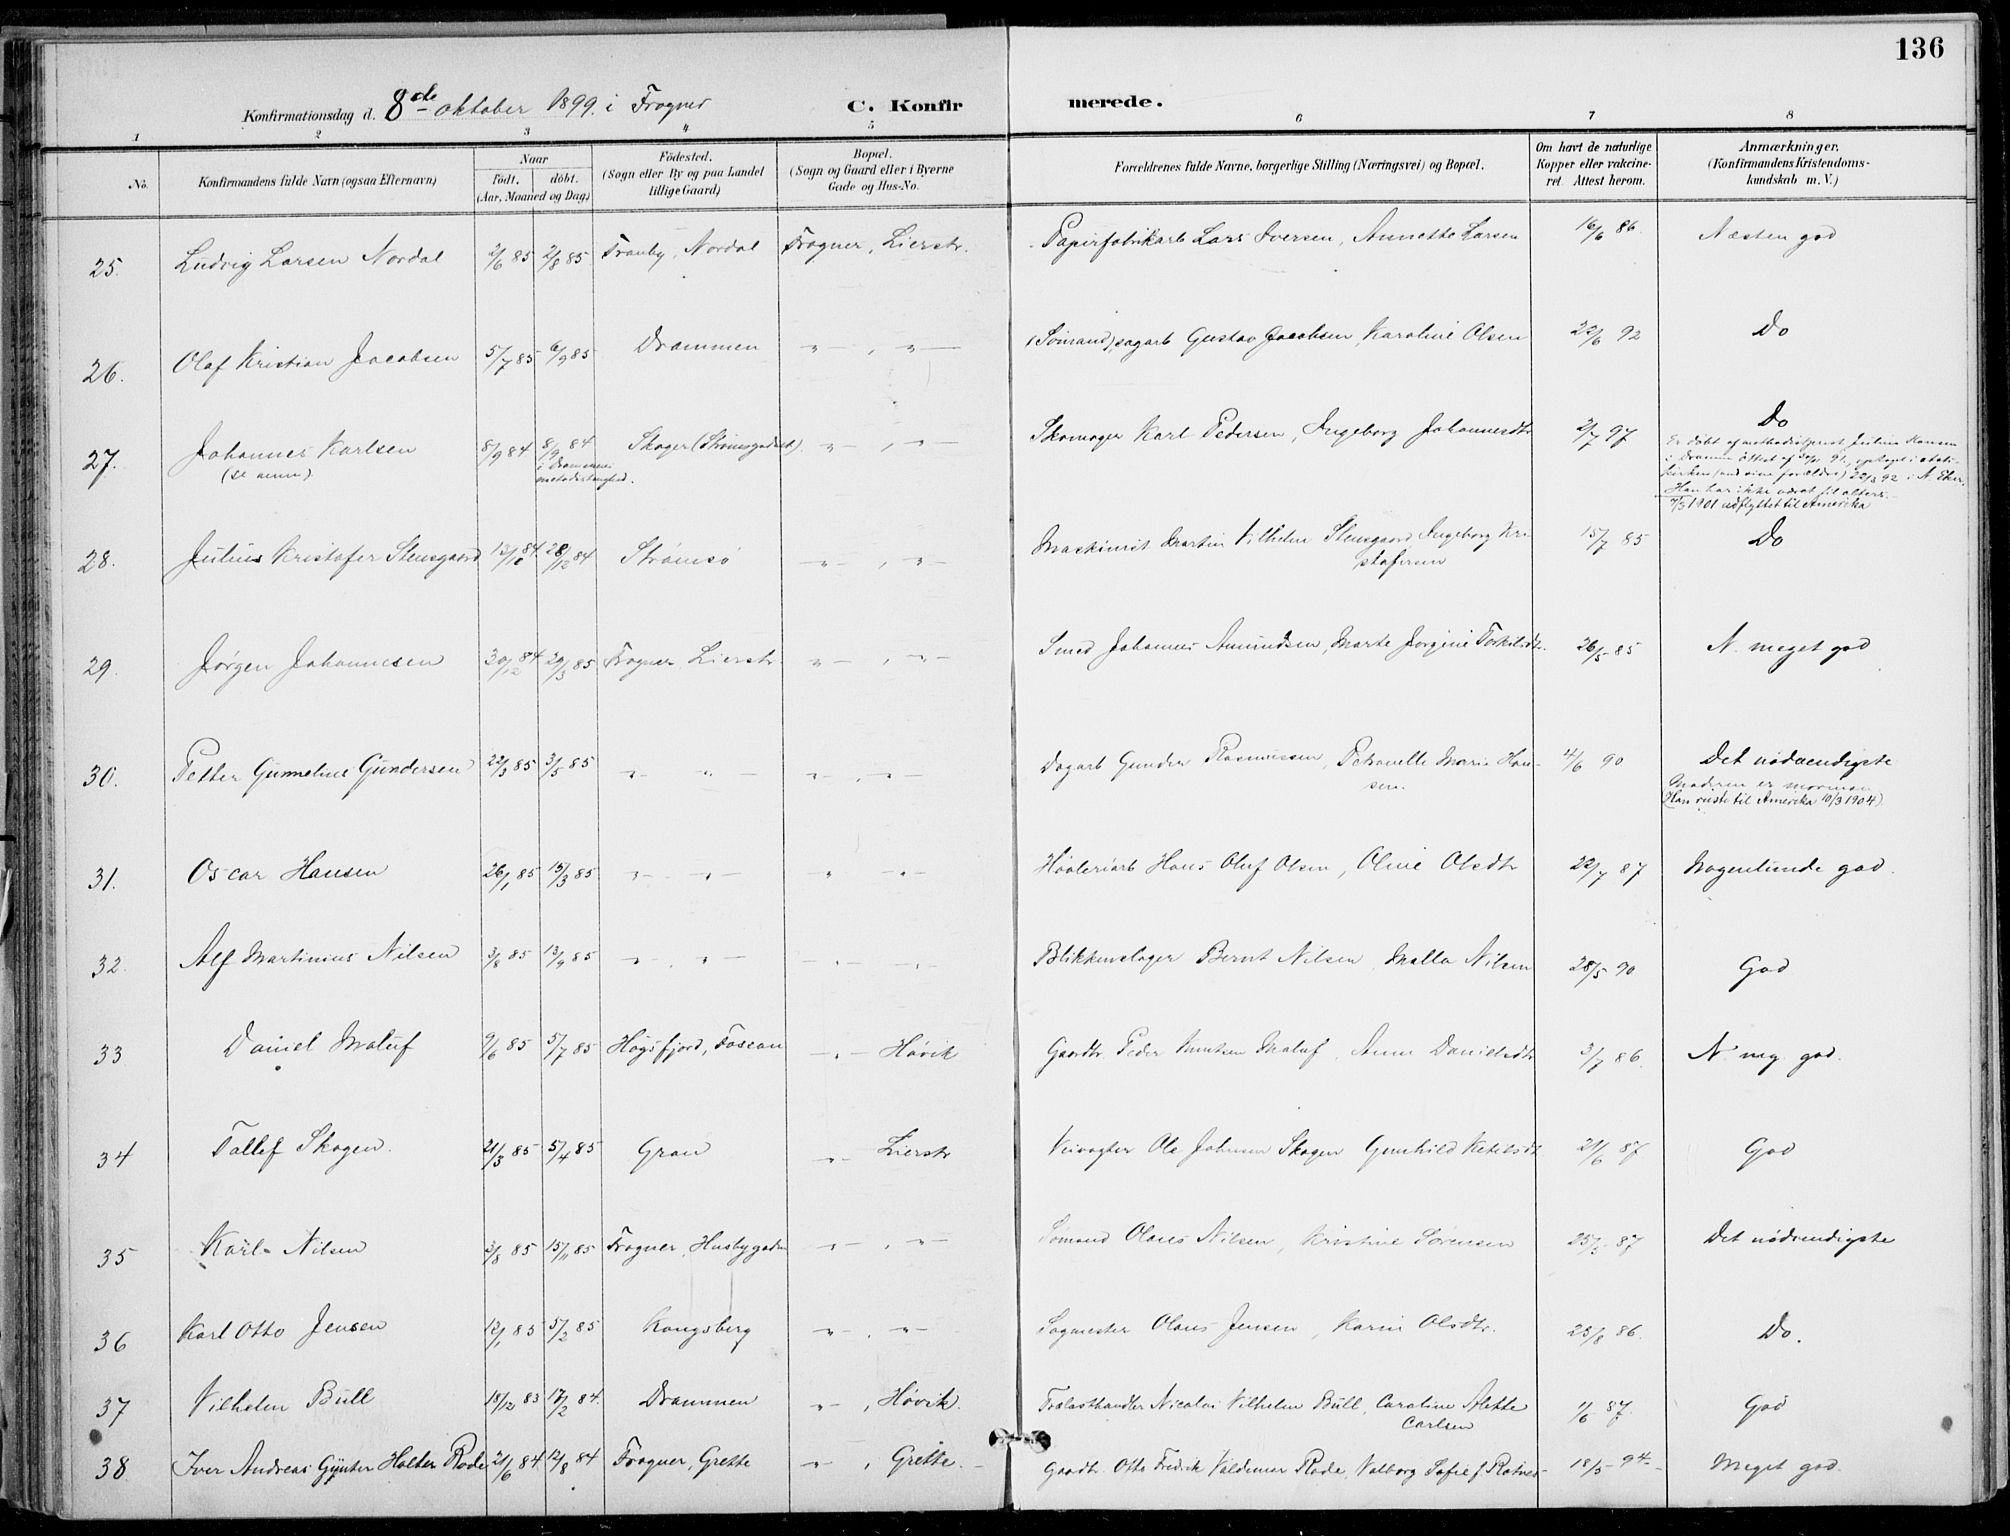 136
Konfirmationsdag d. 8de oktober 1899. i Frogner C. Konfirmerede.
1 2 3 4 5 6 7 8
No. Konfirmandens fulde Navn (ogsaa Efternavn) Naar Födt. döbt. (Aar, Maaned og Dag) Födested. (Sogn eller By og paa Landet tillige Gaard) Bopæl. (Sogn og Gaard eller i Byerne Gade og Hus-No. Forældrenes fulde Navne, borgerlige Stilling (Næringsvei) og Bopæl. Om havt de naturlige Kopper eller vakcineret. Attest herom. Anmærkninger. (Konfirmandens Kristendomskundskab m. V.)
25. Ludvig Larsen Nordal 2/6 85 2/8 85 Tranby, Nordal Frogner, Lierstr. Papirfabrikarb Lars Iversen, Annette Larsen 16/6 86. Næsten god
26. Olaf Kristian Jacobsen 5/7 85 6/9 85 Drammen " , " (Sömand) sagarb Gustav Jacobsen, Karoline Olsen 22/6 92 Do
27. Johannes Karlsen 8/9 84 8/9 84 Skoger (Strömsgodset) " , " Skomager Karl Pedersen, Ingeborg Johannesdtr 2/7 97 Do
(se anm.) i Drammens metodistmenighed.
Er döbt af methodistprest Julius Hansen
i Drammen
22/3 92 i N. Eker.
Han har ikke været til alters.
7/3 1901 udflyttet til Amerika
28. Julius Kristofer Stensgaard 13/10 84 28/12 84 Strömsö " , " Maskinist Martin Vilhelm Stensgaard Ingeborg Kristofersen 15/7 85 Do
29. Jørgen Johannesen 30/12 84 29/3 85 Frogner Lierstr " , " Smed Johannes Amundsen, Marte Jorgine Torkilsdtr. 26/5 85 N. meget god
30. Petter Gunnelius Gundersen 22/3 85 3/5 85 " " " , " Dagarb Gunder Rasmussen, Petronelle Marie Hansen. 4/6 90 Det nödvendigste
Moderen er mormon.
(Han reiste til Amerika 10/3 1904).
31. Oscar Hansen 26/1 85 15/3 85 " " " " Hövleriarb Hans Oluf Olsen, Oline Olsdtr 22/7 87 Nogenlunde god.
32. Alf Martinius Nilsen 3/8 85 13/9 85 " , " " , " Blikkenslager Bernt Nilsen Malla Nilsen 28/5 90 God
33 Daniel Maluf 9/6 85 5/7 85 Högsfjord, Fossan " Høvik Gaardbr. Peder Knutsen Maluf, Anne Danielsdtr 3/7 86. N. meg. god.
34 Tallef Skogen. 21/3 85 5/4 85 Gran " Lierstr Veivogter Ole Johnsen Skogen Gunhild Ketilsdt. 21/6 87 God
35 Karl Nilsen 3/8 85 15/11 85 Frogner, Husbygaden " , " Sömand Olaus Nilsen, Kristine Sörensen 25/5 87 Det nödvendigste
36 Karl Otto Jensen 12/1 85 5/2 85 Kongsberg " , " Sagmester Olaus Jensen, Karin Olsdtr. 25/8 86. Do.
37 Vilhelm Bull 18/12 83 17/2 84. Drammen " , Høvik. Trælasthandler Nicolai Vilhelm Bull, Caroline Alette Carlsen 1/6 87. God
38 Iver Andreas Gynter Holter Rode 21/6 84. 12/8 84 Frogner, Grette " , Grette. Gaardbr. Otto Fredrik Valdemar Rode, Valborg Sofie f. 18/5 94 Meget god.